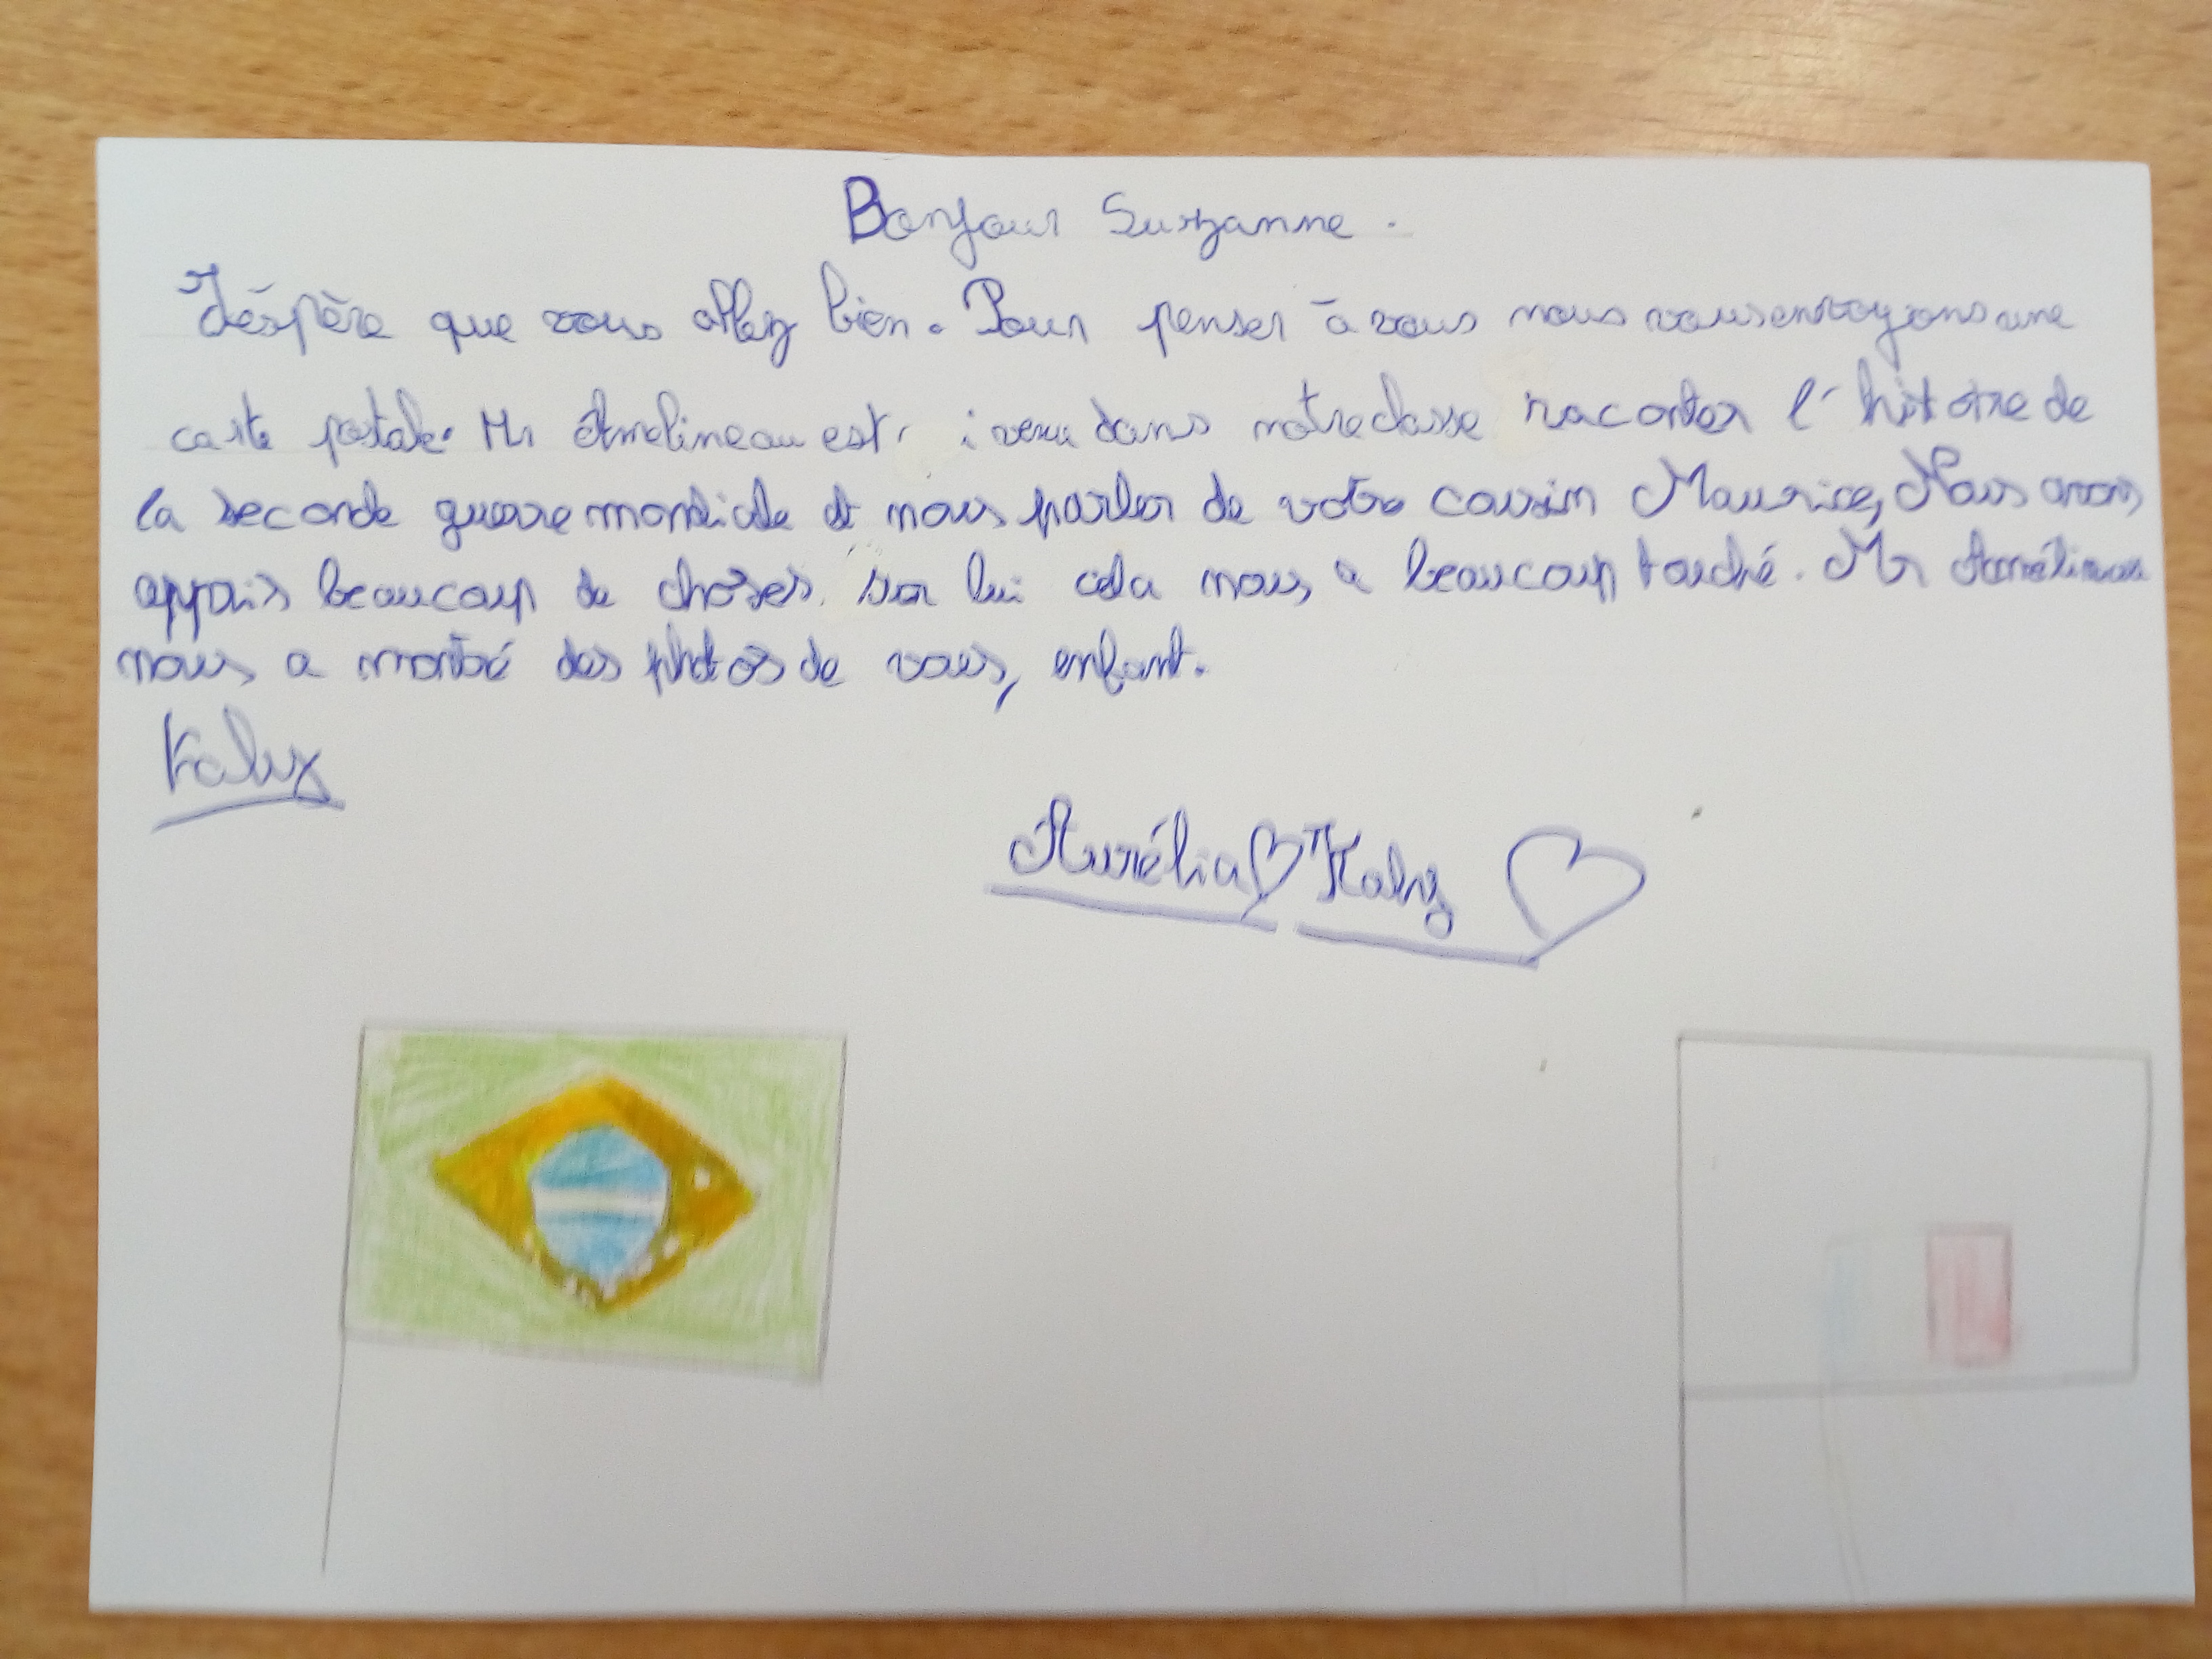 Bonjour Suzanne.
J'éspère que vous allez bien. Pour penser à vous nous vous envoyons une
carte postale. Mr Amelineau est venu dans notre classe raconter l'histoire de
la seconde guerre mondiale et nous parler de votre cousin Maurice, Nous avons
appris beaucoup de choses sur lui cela nous a beaucoup touché. Mr Amélineau
nous a montré des photos de vous, enfant.
Aurélia